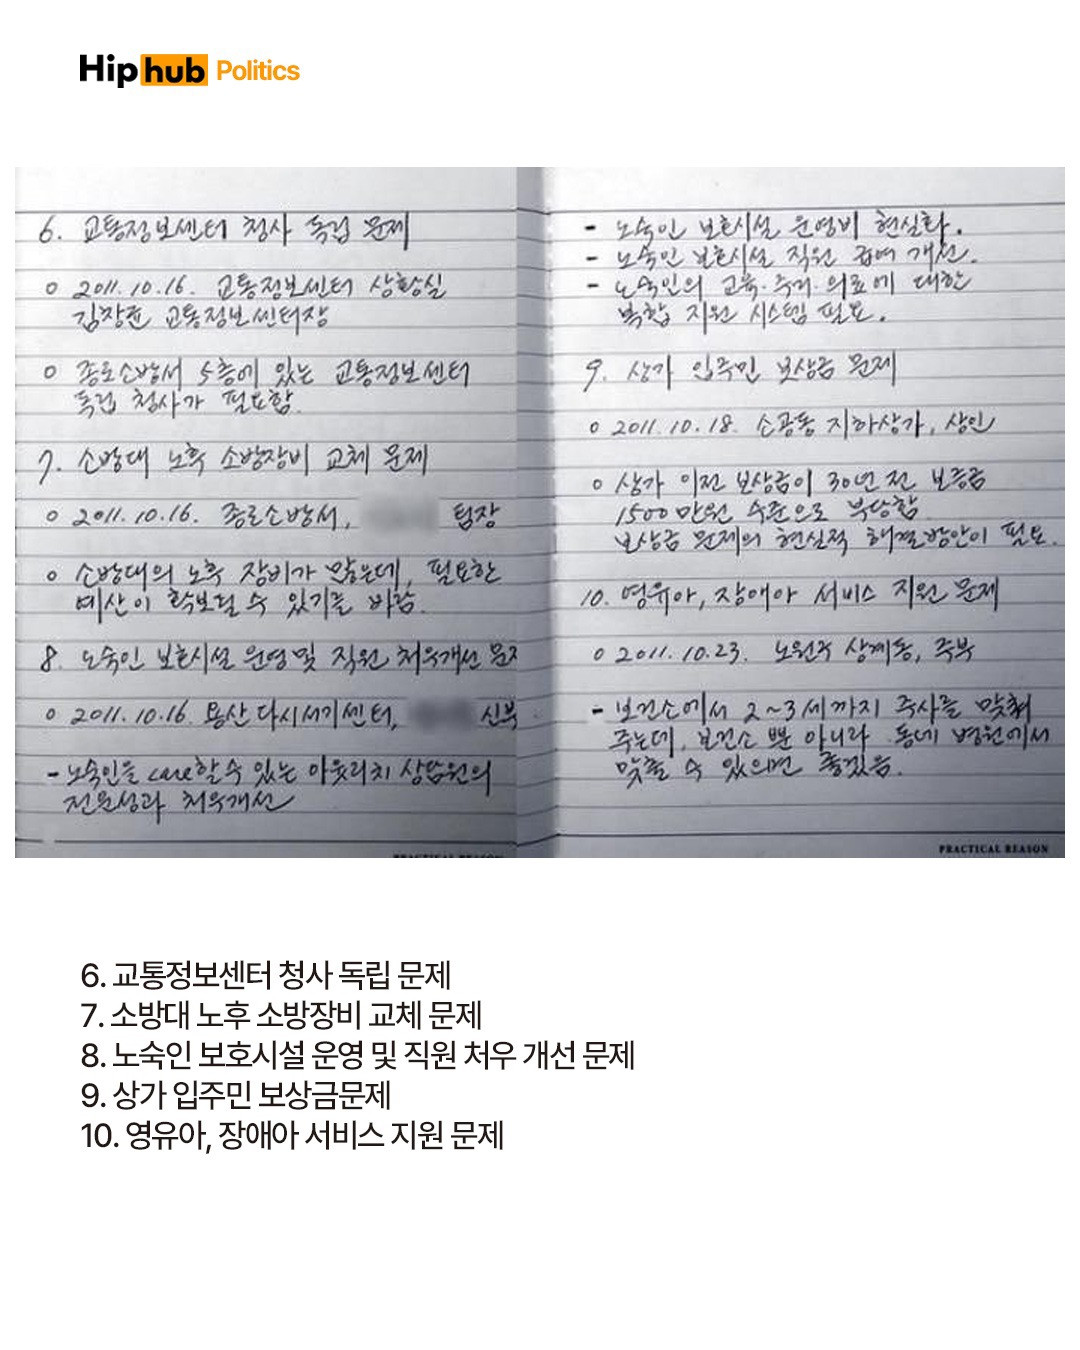 Hip hub Politics
6. 교통정보센터 청사 독립 문제
o 2011.10.16. 교통정보센터 상황실
김장훈 교통정보센터장
o 종로소방서 5층에 있는 교통정보센터
독립 청사가 필요함.
7. 소방대 노후 소방장비 교체 문제
o 2011.10.16. 종로소방서, 팀장
o 소방대의 노후 장비가 많은데, 필요한
예산이 확보될 수 있기를 바람.
8. 노숙인 보호시설 운영 및 직원 처우개선 문제
o 2011.10.16. 용산 다시서기센터, 신부
- 노숙인을 care할 수 있는 아웃리치 상담원의
전문성과 처우개선
PRACTICAL REASON
- 노숙인 보호시설 운영비 현실화.
- 노숙인 보호시설 직원 급여 개선.
- 노숙인의 교육·주거·의료에 대한
복합 지원 시스템 필요.
9. 상가 입주민 보상금 문제
o 2011.10.18. 소공동 지하상가, 상인
o 상가 이전 보상금이 30년 전 보증금
1500만원 수준으로 부당함
보상금 문제의 현실적 해결방안이 필요.
10. 영유아, 장애아 서비스 지원 문제
o 2011.10.23. 노원구 상계동, 주부
- 보건소에서 2~3세까지 주사를 맞춰
주는데, 보건소 뿐 아니라 동네 병원에서
맞출 수 있으면 좋겠음.
PRACTICAL REASON
6. 교통정보센터 청사 독립 문제
7. 소방대 노후 소방장비 교체 문제
8. 노숙인 보호시설 운영 및 직원 처우 개선 문제
9. 상가 입주민 보상금문제
10. 영유아, 장애아 서비스 지원 문제